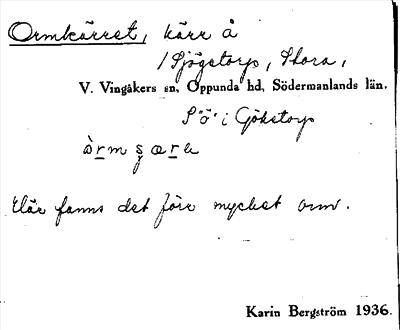 Ormkärret, kärr å
/Sjögetorp, Stora,
V. Vingåkers sn, Oppunda hd, Södermanlands län.
S"ö" i Gökstorp
Här fanns det förr mycket orm.
Karin Bergström 1936.